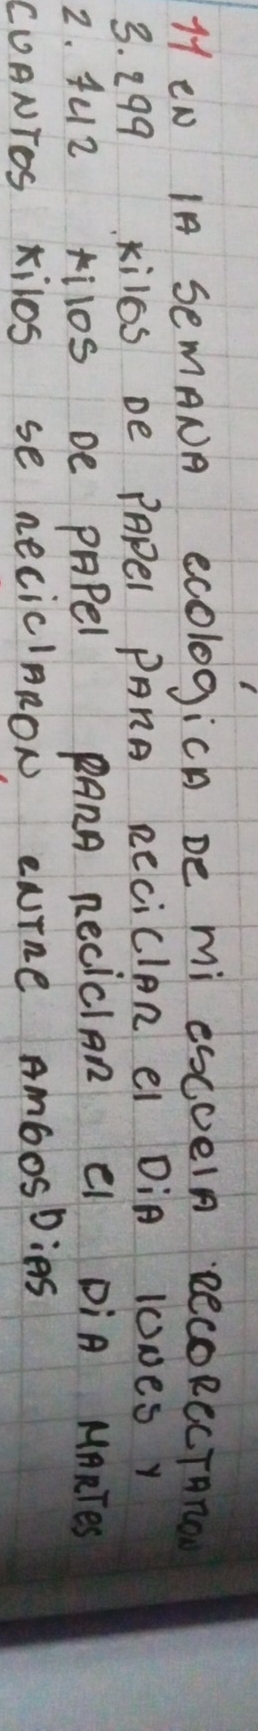 11 EN lA SEMANA ecológicA DE mi escuelA RECORECTARON
3.299 kilos DE PAPEl PARA RECiClAR el DiA lUNES Y
2.742 kilos DE PAPEl PARA RECiclAR el DiA MARTES
CUANTOS kilos SE RECiclARON ENTRE AMBOS DiAS